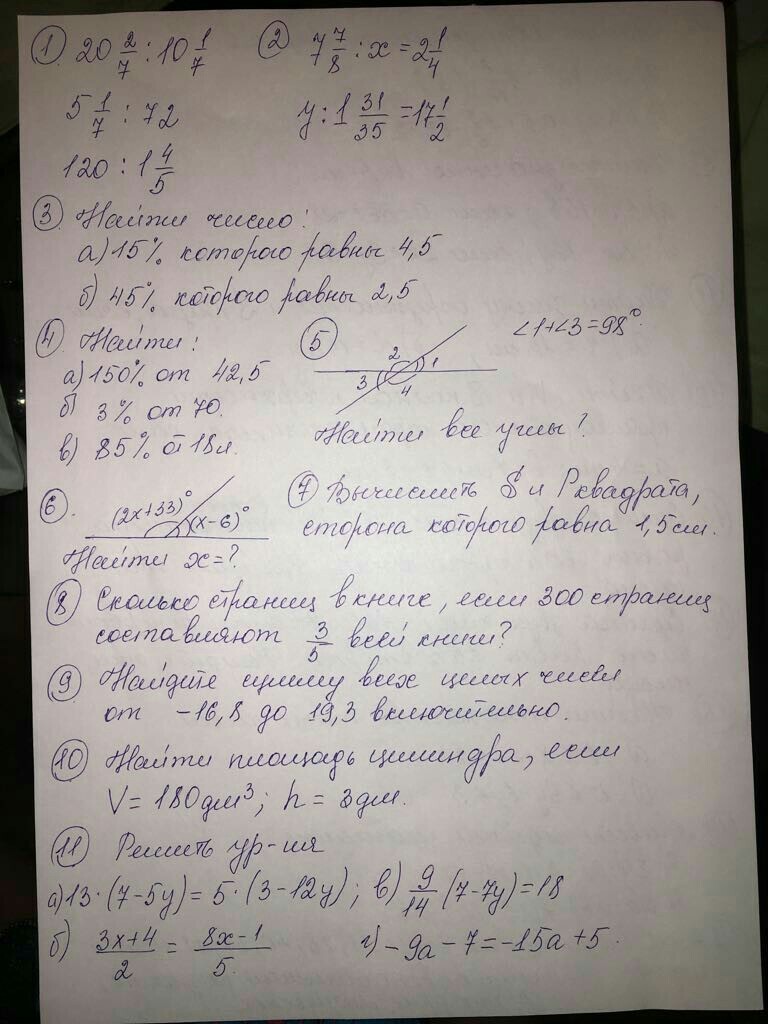 ① 20 2/7 : 10 1/7
5 1/7 : 72
120 : 1 4/5
② 7 7/8 : x = 2 1/4
y : 1 31/35 = 17 1/2
③ Найти число:
а) 15% которого равны 4,5
б) 45% которого равны 2,5
④ Найти:
а) 150% от 42,5
б) 3% от 70.
в) 85% от 18л.
⑤ ∠1+∠3=98°
2
1
3
4
Найти все углы!
⑥ (2x+33)° (x-6)°
Найти x=?
⑦ Вычислить S и P квадрата,
сторона которого равна 1,5 см.
⑧ Сколько страниц в книге, если 300 страниц
составляют 3/5 всей книги?
⑨ Найдите сумму всех целых чисел
от -16,8 до 19,3 включительно.
⑩ Найти площадь цилиндра, если
V = 180 дм³; h = 3 дм.
⑪ Решить ур-ия
а) 13·(7-5y) = 5·(3-12y); в) 9/14 (7-7y) = 18
б) (3x+4)/2 = (8x-1)/5. г) -9a-7 = -15a+5.